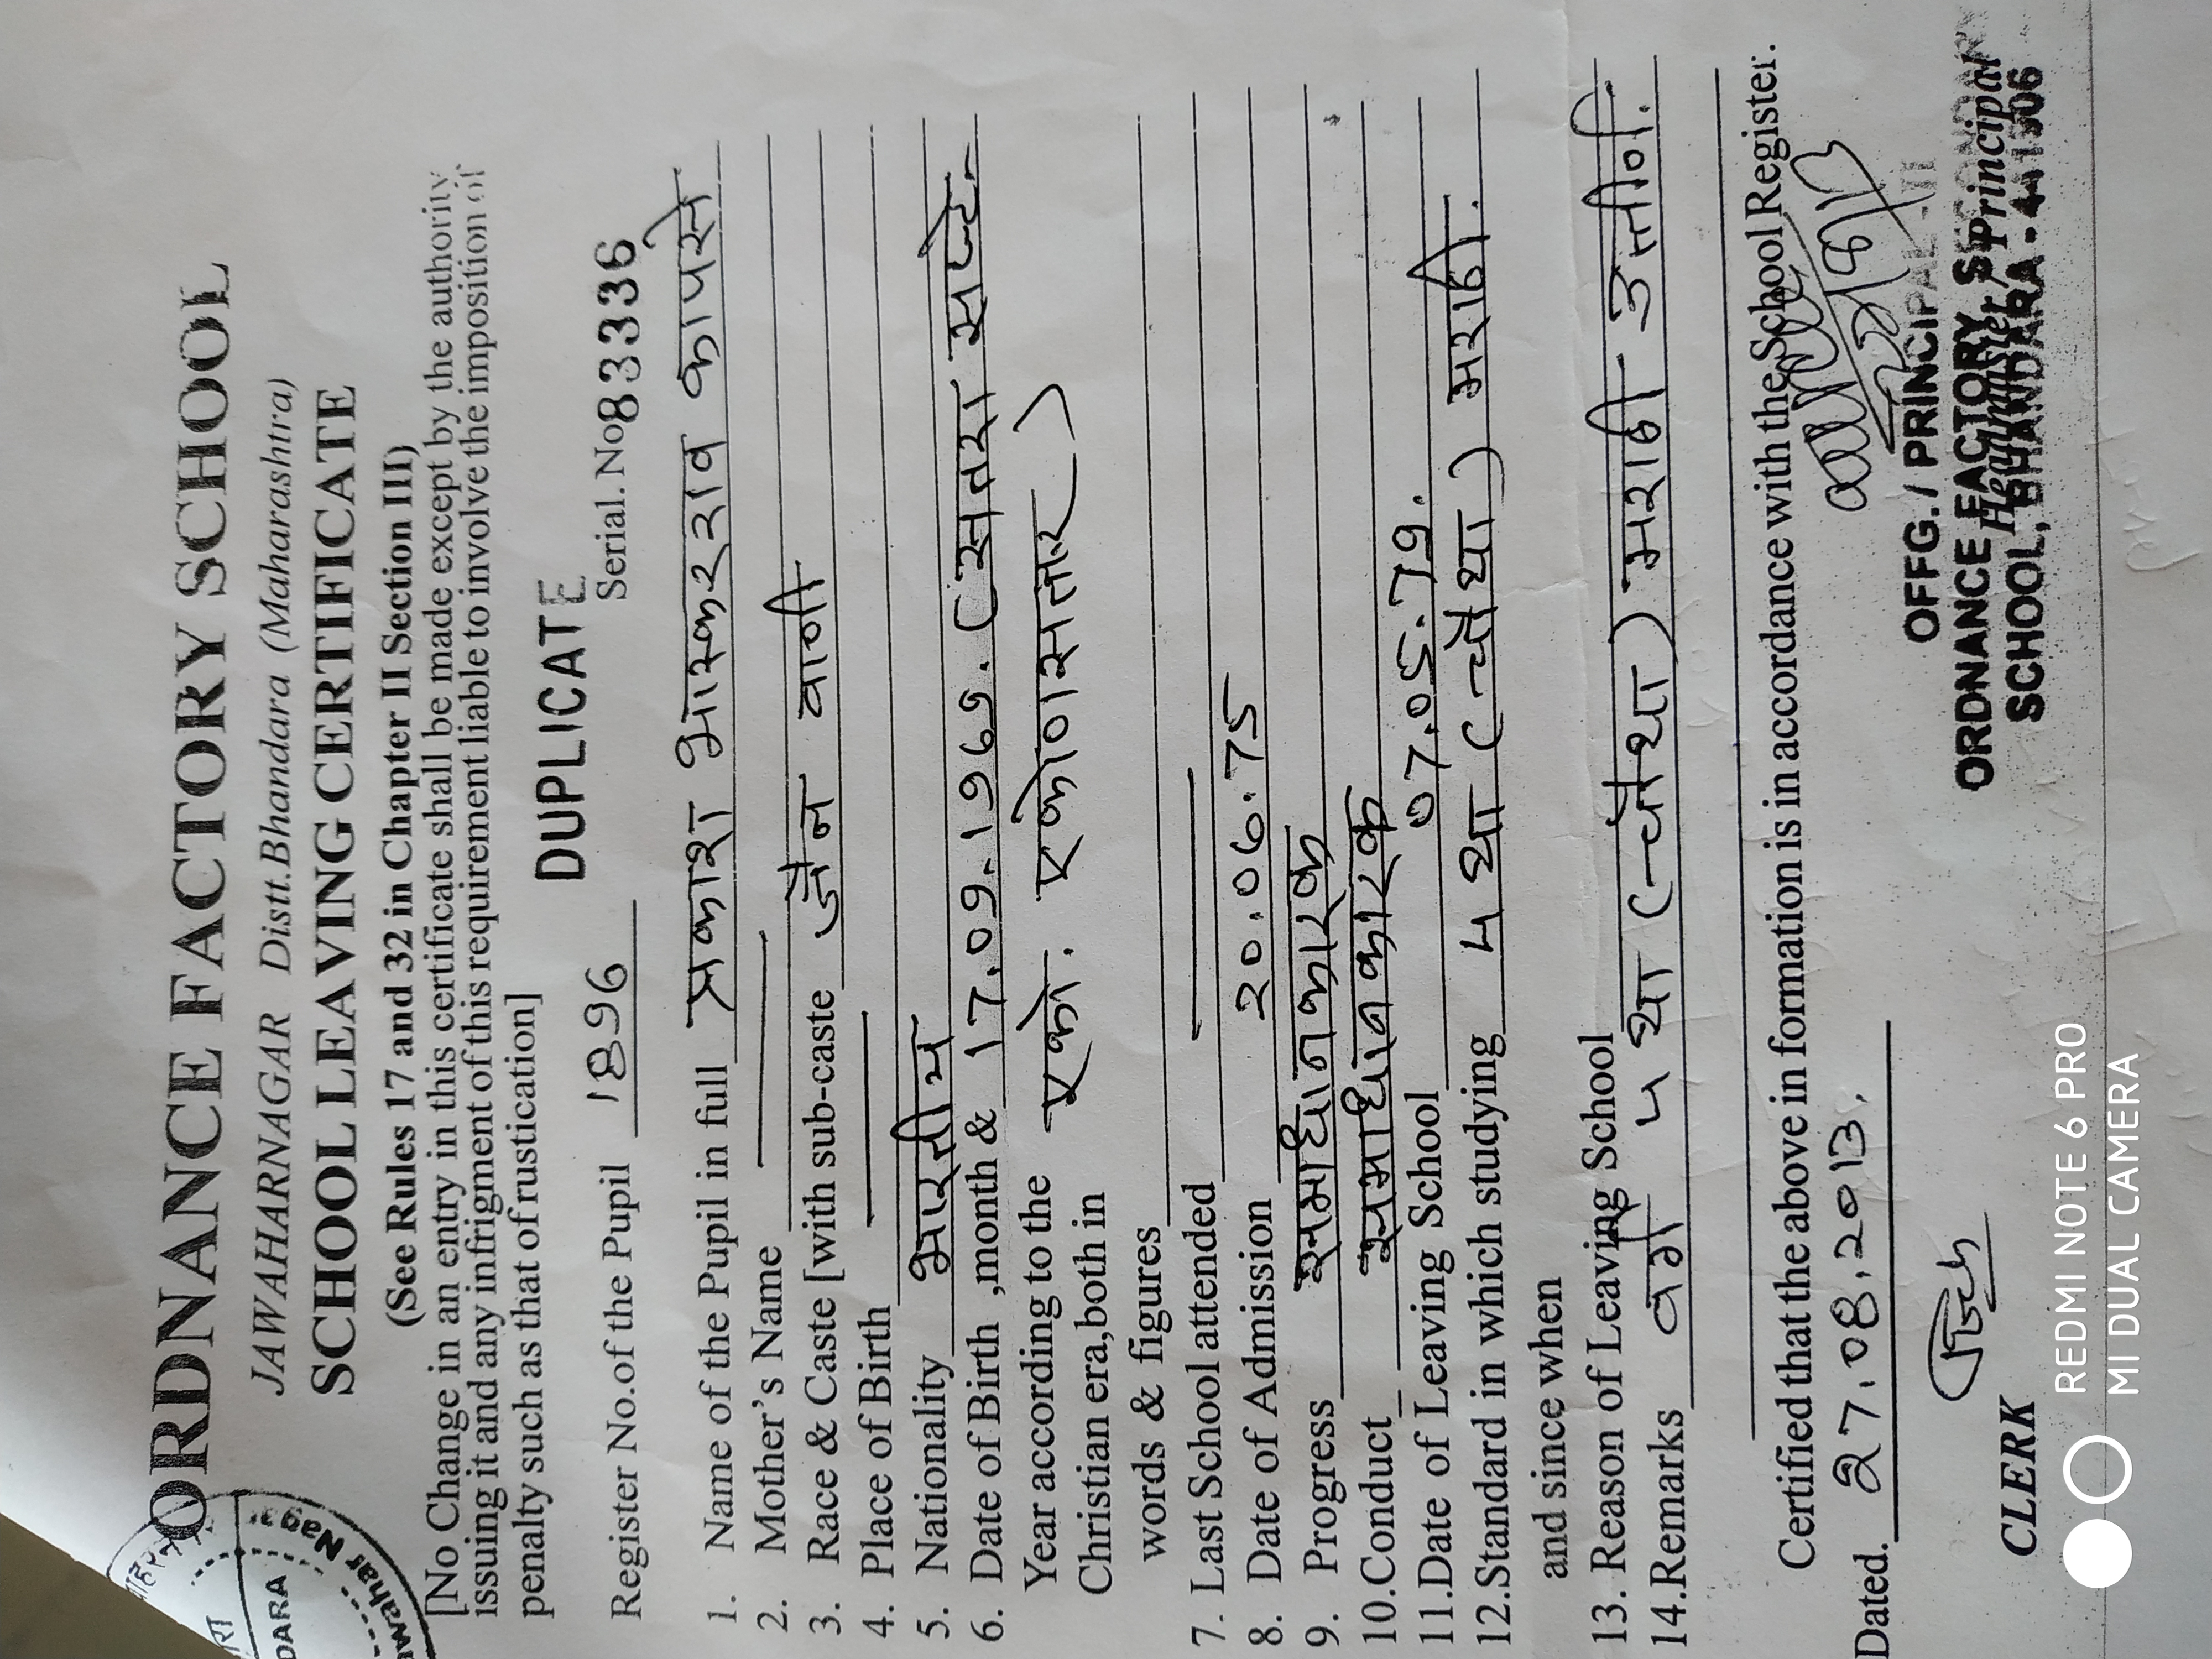 ORDNANCE FACTORY SCHOOL
JAWAHARNAGAR Distt.Bhandara (Maharashtra)
SCHOOL LEAVING CERTIFICATE
(See Rules 17 and 32 in Chapter II Section III)
[No Change in an entry in this certificate shall be made except by the authority
issuing it and any infrigment of this requirement liable to involve the imposition of
penalty such as that of rustication]
DUPLICATE
Register No.of the Pupil 1896 Serial.No 8336
1. Name of the Pupil in full प्रकाश भास्करराव कापसे
2. Mother's Name
3. Race & Caste [with sub-caste जैन वाणी
4. Place of Birth
5. Nationality भारतीय
6. Date of Birth ,month & 17.09.1967. (सतरा सप्टे.
Year according to the एको. एकोणासत्तर)
Christian era,both in
words & figures
7. Last School attended
8. Date of Admission 20.06.75
9. Progress समाधानकारक
10.Conduct समाधानकारक
11.Date of Leaving School 07.05.79.
12.Standard in which studying ५ था (चौथा) मराठी.
and since when
13. Reason of Leaving School
14.Remarks वर्ग ५ था (चौथा) मराठी उत्तीर्ण.
Certified that the above in formation is in accordance with the School Register.
Dated. 27.08.2013.
OFFG. / PRINCIPAL
ORDNANCE FACTORY
Headmaster/Principal
SCHOOL, BHANDARA - 441906
CLERK
DARA
Jawahar Nagar
REDMI NOTE 6 PRO
MI DUAL CAMERA